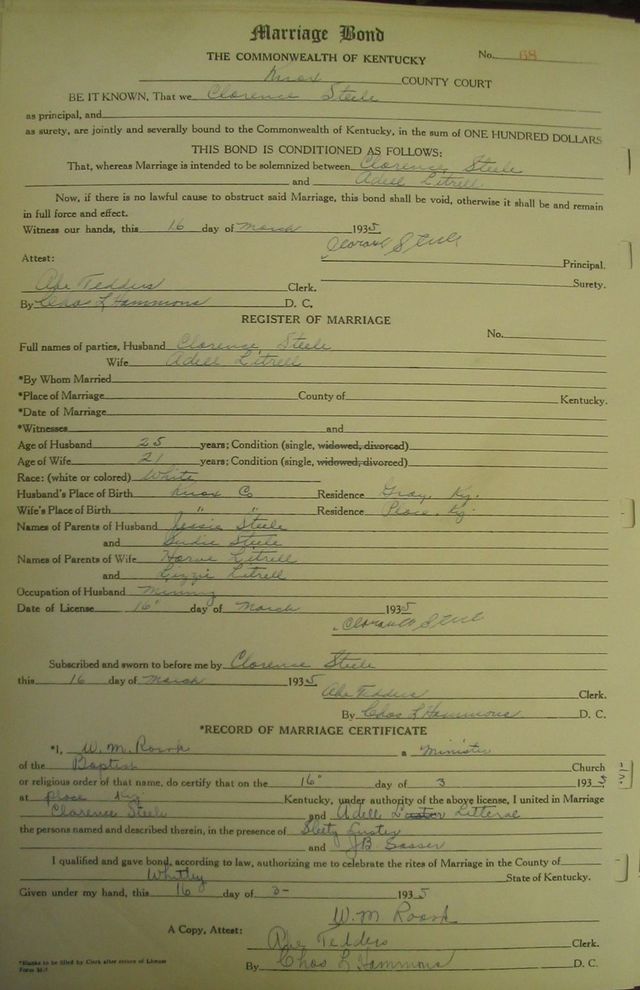 Marriage Bond
THE COMMONWEALTH OF KENTUCKY No. 68
Knox COUNTY COURT
BE IT KNOWN, That we Clorence Steele
as principal, and
as surety, are jointly and severally bound to the Commonwealth of Kentucky, in the sum of ONE HUNDRED DOLLARS
THIS BOND IS CONDITIONED AS FOLLOWS:
That, whereas Marriage is intended to be solemnized between Clorence Steele
and Adell Litrell
Now, if there is no lawful cause to obstruct said Marriage, this bond shall be void, otherwise it shall be and remain
in full force and effect.
Witness our hands, this 16 day of March 1935
Steele
Attest: Principal.
Abe Tedders Clerk. Surety.
By Chas L Hammons D. C.
REGISTER OF MARRIAGE
No.
Full names of parties, Husband Clorence Steele
Wife Adell Litrell
*By Whom Married
*Place of Marriage County of Kentucky.
*Date of Marriage
*Witnesses and
Age of Husband 25 years; Condition (single, widowed, divorced)
Age of Wife 21 years; Condition (single, widowed, divorced)
Race: (white or colored) White
Husband's Place of Birth Knox Co Residence Gray, Ky.
Wife's Place of Birth " " Residence Place, Ky
Names of Parents of Husband Jessie Steele
and Steele
Names of Parents of Wife Harve Litrell
and Lizzie Litrell
Occupation of Husband Mining
Date of License 16" day of March 1935
Steele
Subscribed and sworn to before me by Clorence Steele
this 16 day of March 1935
Abe Tedders Clerk.
By Chas L Hammons D. C.
*RECORD OF MARRIAGE CERTIFICATE
*I, W. M. Roark a Minister
of the Baptish Church
or religious order of that name, do certify that on the 16" day of 3 1935
at place Ky Kentucky, under authority of the above license, I united in Marriage
Clorence Steele and Adell Litteral
the persons named and described therein, in the presence of
and J B Sasser
I qualified and gave bond, according to law, authorizing me to celebrate the rites of Marriage in the County of
Whitley State of Kentucky.
Given under my hand, this 16 day of 3- 1935
W. M Roark
A Copy, Attest:
Abe Tedders Clerk.
By Chas L Hammons D. C.
*Blanks to be filled by Clerk after return of License